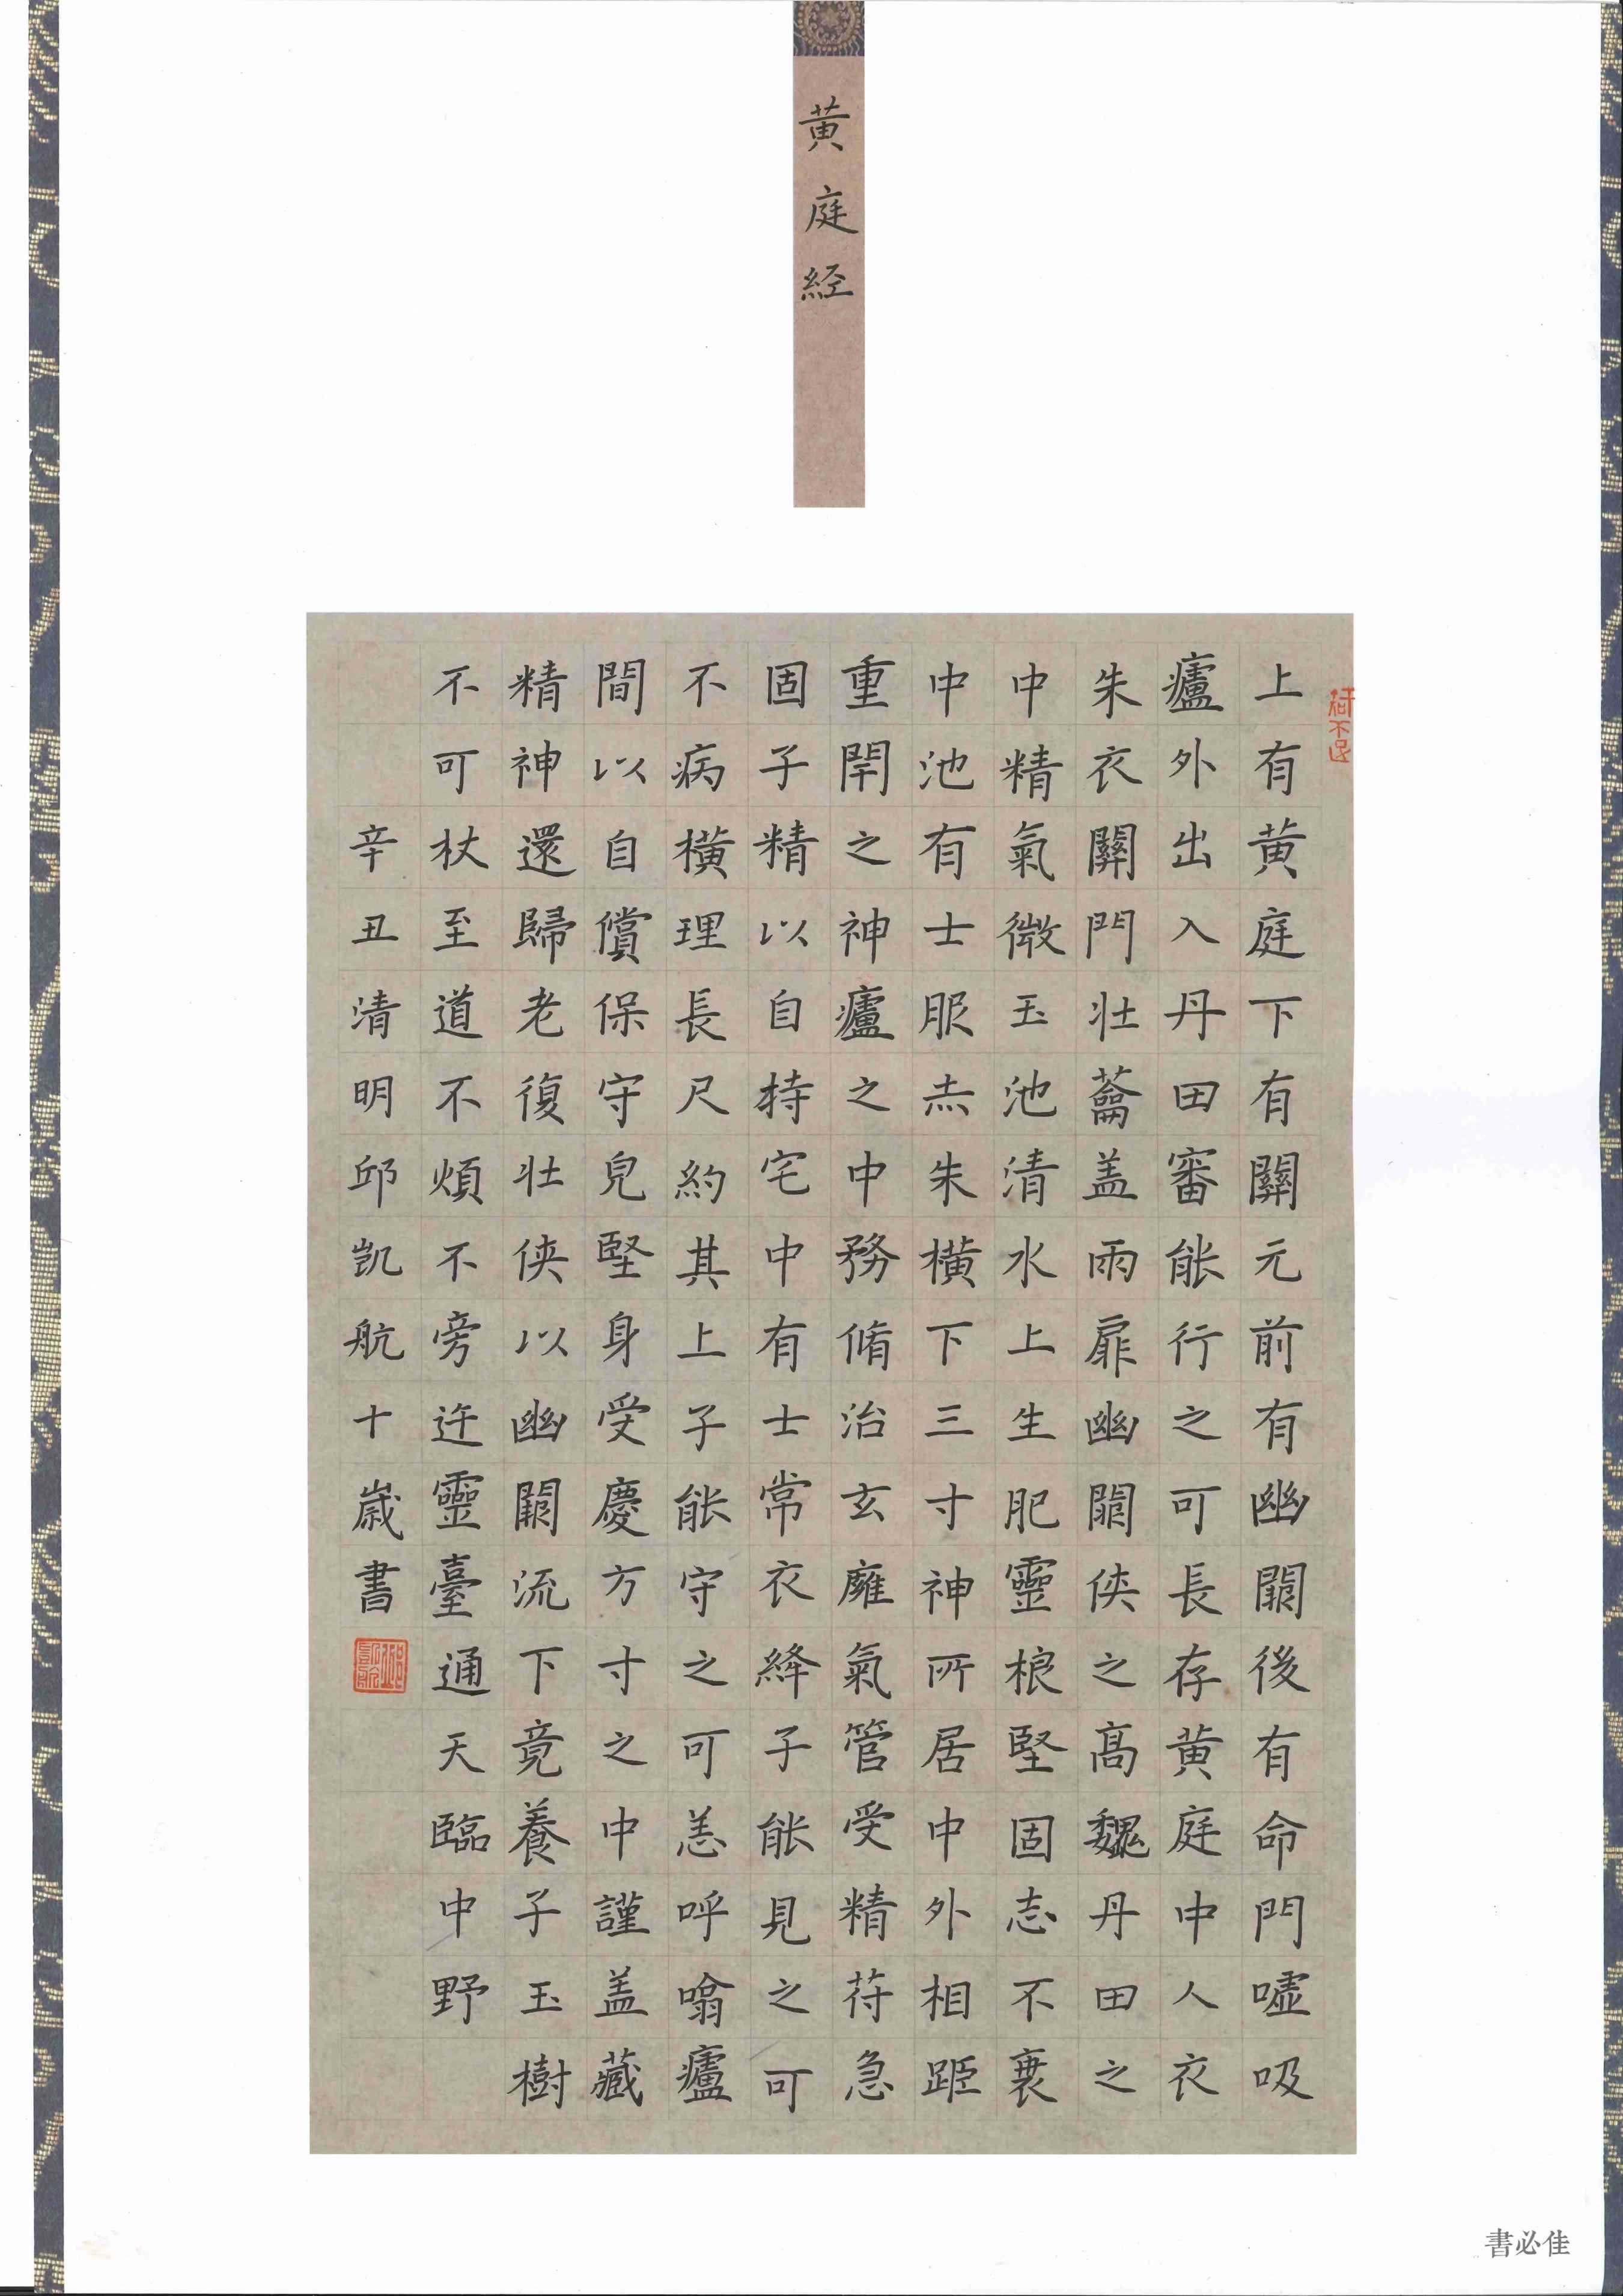 黄庭経
上有黄庭下有關元前有幽闕後有命門噓吸
廬外出入丹田審能行之可長存黄庭中人衣
朱衣關門壯蘥盖兩扉幽闕俠之高魏丹田之
中精氣微玉池清水上生肥靈根堅固志不衰
中池有士服赤朱橫下三寸神所居中外相距
重閇之神廬之中務脩治玄膺氣管受精苻急
固子精以自持宅中有士常衣絳子能見之可
不病橫理長尺約其上子能守之可恙呼噏廬
間以自償保守皃堅身受慶方寸之中謹盖藏
精神還歸老復壯俠以幽闕流下竟養子玉樹
不可杖至道不煩不旁迕靈臺通天臨中野
辛丑清明邱凱航十歲書
書必佳